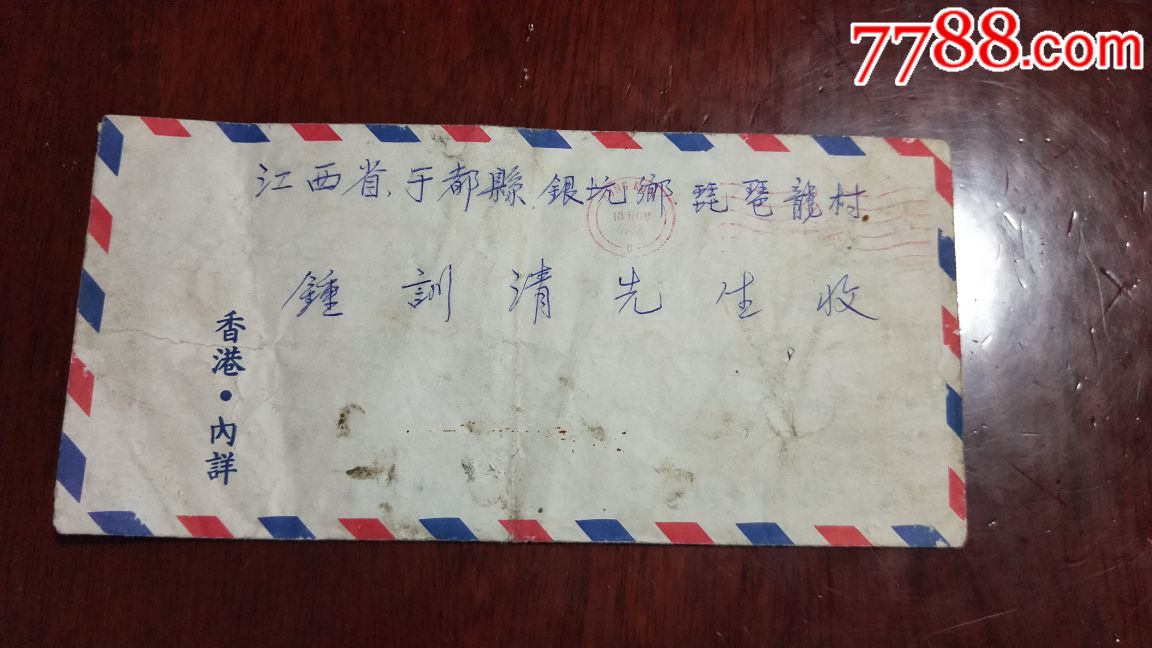 7788.com
江西省、于都縣、銀坑鄉、琵琶龍村
鍾訓清先生收
18 NOV
香港·內詳